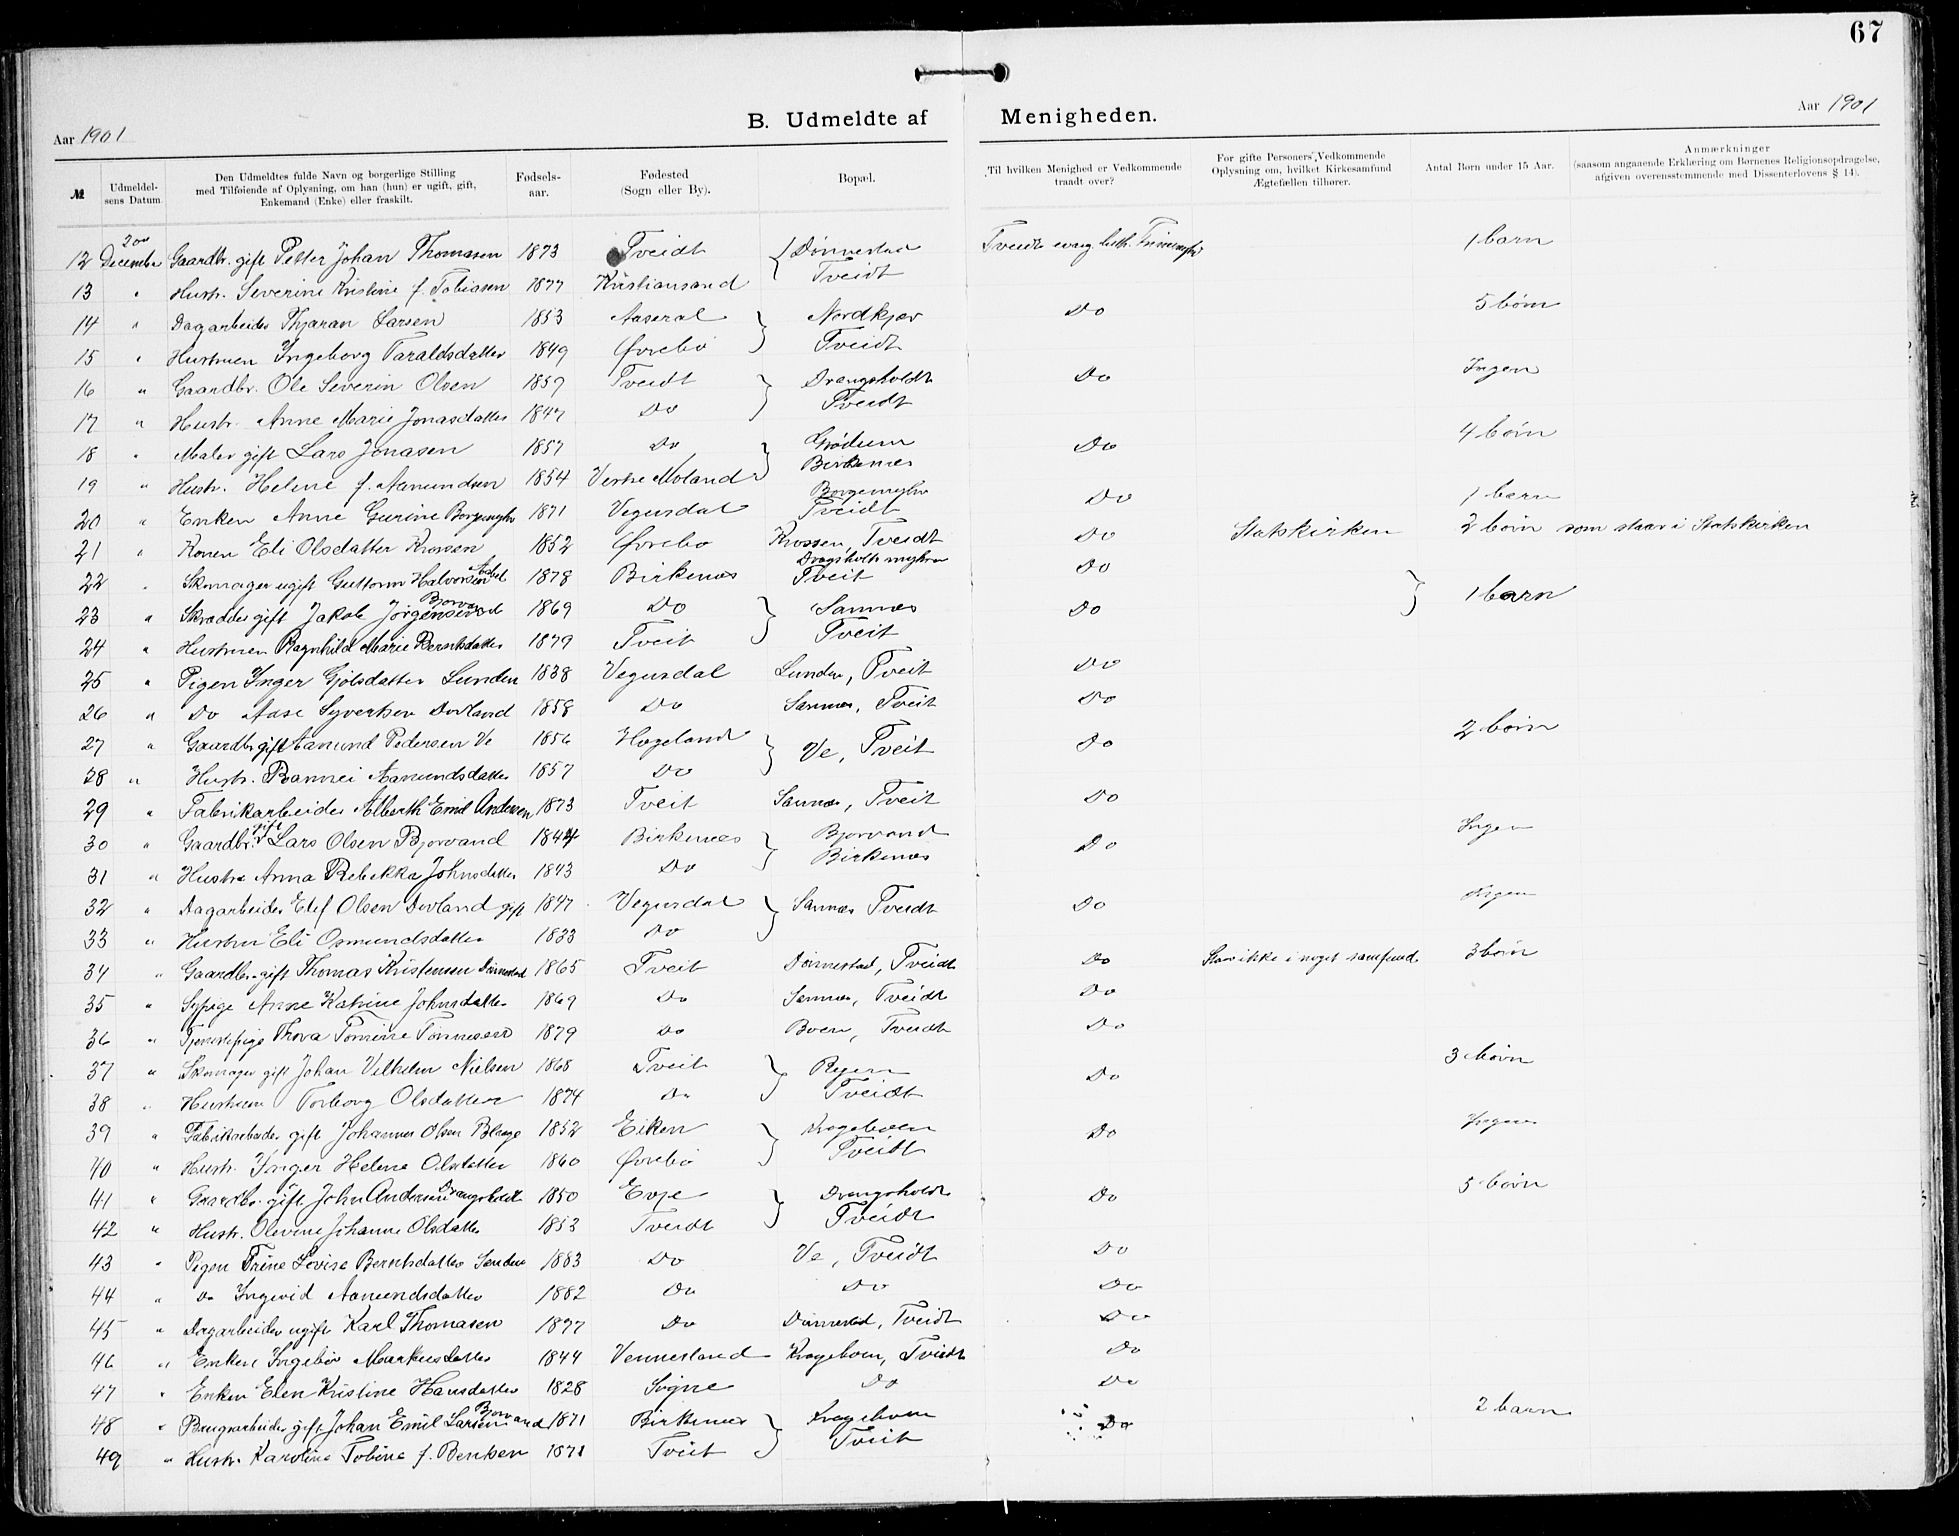 67
B. Udmeldte af Menigheden.
Aar 1901 Aar 1901
№ Udmeldelsens Datum. Den Udmeldtes fulde Navn og borgerlige Stilling med Tilføiende af Oplysning, om han (hun) er ugift, gift, Enkemand (Enke) eller fraskilt. Fødselsaar. Fødested (Sogn eller By). Bopæl. Til hvilken Menighed er Vedkommende traadt over? For gifte Personers Vedkommende Oplysning om, hvilket Kirkesamfund Ægtefællen tilhører. Antal Børn under 15 Aar. Anmærkninger (saasom angaaende Erklæring om Børnenes Religionsopdragelse, afgiven overensstemmende med Dissenterlovens § 14).
12 December Gaardbr. gift Petter Johan Thomasen 1873 Tveidt Dønnestad Tveidt Tveidt evang. luth. 1 barn
13 " Hustr. Severine Kristine f. Tobiasen 1877 Kristiansand
14 " Dagarbeider Thjøran Larsen 1853 Aaseral Nordkjær Tveidt Do 5 børn
15 " Hustruen Ingeborg Taraldsdatter 1849 Øvrebø
16 " Gaardbr. Ole Severin Olsen 1859 Tveidt Drangsholdt Tveidt Do Ingen
17 " Hustr. Anne Marie Jonasdatter 1847 Do
18 " Maler gift Lars Jonasen 1857 Do Grødum Birkenes Do 4 børn
19 " Hustr. Helene f. Aamundsen 1854 Vestre Moland
20 " Enken Anne Gurine Borgemyhr 1871 Vegusdal Borgemyhr Tveidt Do 1 barn
21 " Konen Eli Olsdatter Krossen 1852 Øvrebø Krossen, Tveidt Do Statskirken 2 børn som staar i Statskirken
22 " Skomager ugift Guttorm Halvorsen 1878 Birkenes Drangsholts myhren Tveit Do
23 " Skrædder gift Jakob Jørgensen Bjorvand 1869 Do Sannes Tveit Do 1 barn
24 " Hustruen Ragnhild Marie Berntsdatter 1879 Tveit
25 " Pigen Inger Gjølsdatter Lunden 1838 Vegusdal Lunden, Tveit Do
26 " Do Aase Syvertsen Dovland 1858 Do Sannes, Tveit Do
27 " Gaardbr gift Aamund Pedersen Ve 1856 Hægeland Ve, Tveit Do 2 børn
28 " Hustr. Rannei Aamundsdatter 1857 Do
29 " Fabrikarbeider Alberth Emil Andersen 1873 Tveit Sannes, Tveit Do
30 " Gaardbr. gift Lars Olsen Bjorvand 1844 Birkenæs Bjorvand Birkenæs Do Ingen
31 " Hustru Anna Rebekka Johnsdatter 1843 Do
32 " Dagarbeider Elef Olsen Dovland gift 1847 Vegusdal Sannæs Tveidt Do Ingen
33 " Hustru Eli Osmundsdatter 1833 Do
34 " Gaardbr. gift Thomas Kristensen Dønnestad 1865 Tveit Dønnestad, Tveidt Do Staar ikke i noget samfund 3 børn
35 " Sypige Anne Katrine Johnsdatter 1869 Do Sannes, Tveidt Do
36 " Tjenestepige Thora Tomine Tønnesen 1879 Do Boen, Tveidt Do
37 " Skomager gift Johan Vilhelm Nielsen 1868 Tveit Ryen Tveidt Do 3 børn
38 " Hustruen Torborg Olsdatter 1874 Do
39 " Fabrikarbeider gift Johannes Olsen 1852 Eiken Krageboen Tveidt Do Ingen
40 " Hustr. Inger Helene Olsdatter 1860 Øvrebø
41 " Gaardbr. gift John Andersen Drangsholdt 1850 Evje Drangsholdt Tveidt Do 5 børn
42 " Hustr. Olevine Johanne Olsdatter 1853 Tveidt
43 " Pigen Trine Lovise Berntsdatter 1883 Do Ve, Tveidt Do
44 " Do Ingevid Aamundsdatter 1882 Do Do Do
45 " Dagarbeider ugift Karl Thomasen 1877 Do Dønnestad, Tveidt Do
46 " Enken Ingebør Markusdatter 1844 Vennesland Krageboen, Tveidt Do
47 " Enken Elen Kristine Hansdatter 1828 Søgne Do Do
48 " Brugsarbeider gift Johan Emil Larsen Bjorvand 1871 Birkenes Krageboen Tveit Do 2 barn
49 " Hustr. Karoline Tobine f. Bentsen 1871 Tveit